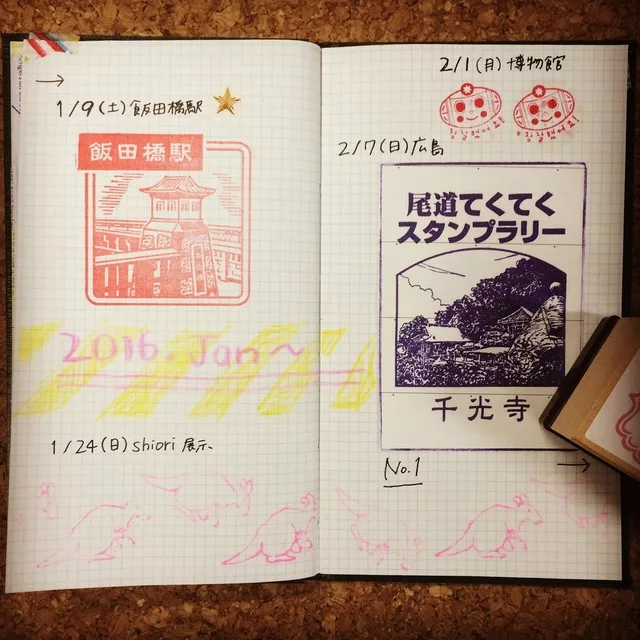 1/9(土)飯田橋駅
飯田橋駅
2016. Jan〜
1/24(日) shiori 展示、
2/1(月)博物館
참 잘했어요!
참 잘했어요!
2/7(日)広島
尾道てくてく
スタンプラリー
千光寺
No.1